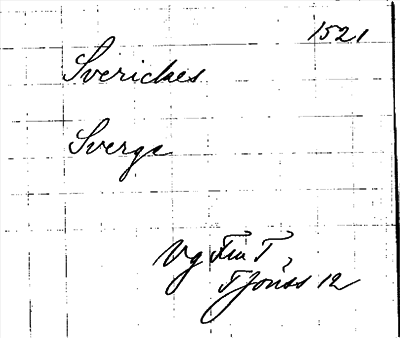 1521
Sverickes
Sverge
Vg Fru T
T Jönss 12